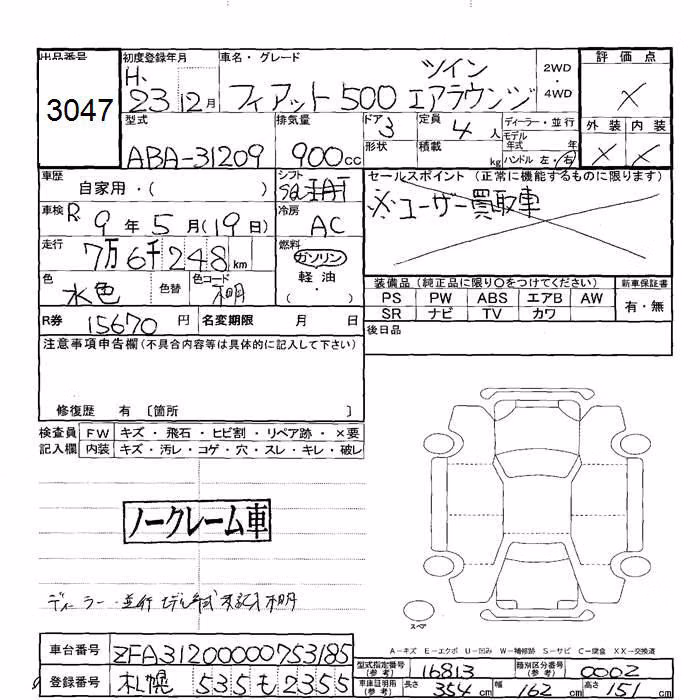 出品番号 初度登録年月 車名・グレード 評価点
3047 H. 23 12月 フィアット500 ツインエアラウンジ 2WD・4WD ×
型式 排気量 ドア 定員 ディーラー・並行 外装 内装
ABA-31209 900cc 3 4人 モデル年式 年 × ×
形状 積載 kg ハンドル 左・右
車歴 自家用・( ) シフト 冷房 AC
セールスポイント (正常に機能するものに限ります)
※ユーザー買取車
車検 R. 9年5月(19日)
走行 7万6千248km 燃料 ガソリン 軽油・( )
色 水色 色替 色コード 不明
装備品 (純正品に限り○をつけてください) 新車保証書
PS PW ABS エアB AW 有・無
SR ナビ TV カワ
R券 15670円 名変期限 月 日 後日品
注意事項申告欄(不具合内容等は具体的に記入して下さい)
修復歴 有 〔箇所 〕
検査員 FW キズ・飛石・ヒビ割・リペア跡・×要
記入欄 内装 キズ・汚レ・コゲ・穴・スレ・キレ・破レ
ノークレーム車
ディーラー・並行 モデル年式 未記入 不明
スペア
A−キズ E−エクボ U−凹み W−補修跡 S−サビ C−腐食 XX−交換済
車台番号 ZFA31200000753185 型式指定番号(参考) 16813 類別区分番号(参考) 0002
登録番号 札幌 535 も 2355 車庫証明用(参考) 長さ 354cm 幅 162cm 高さ 151cm